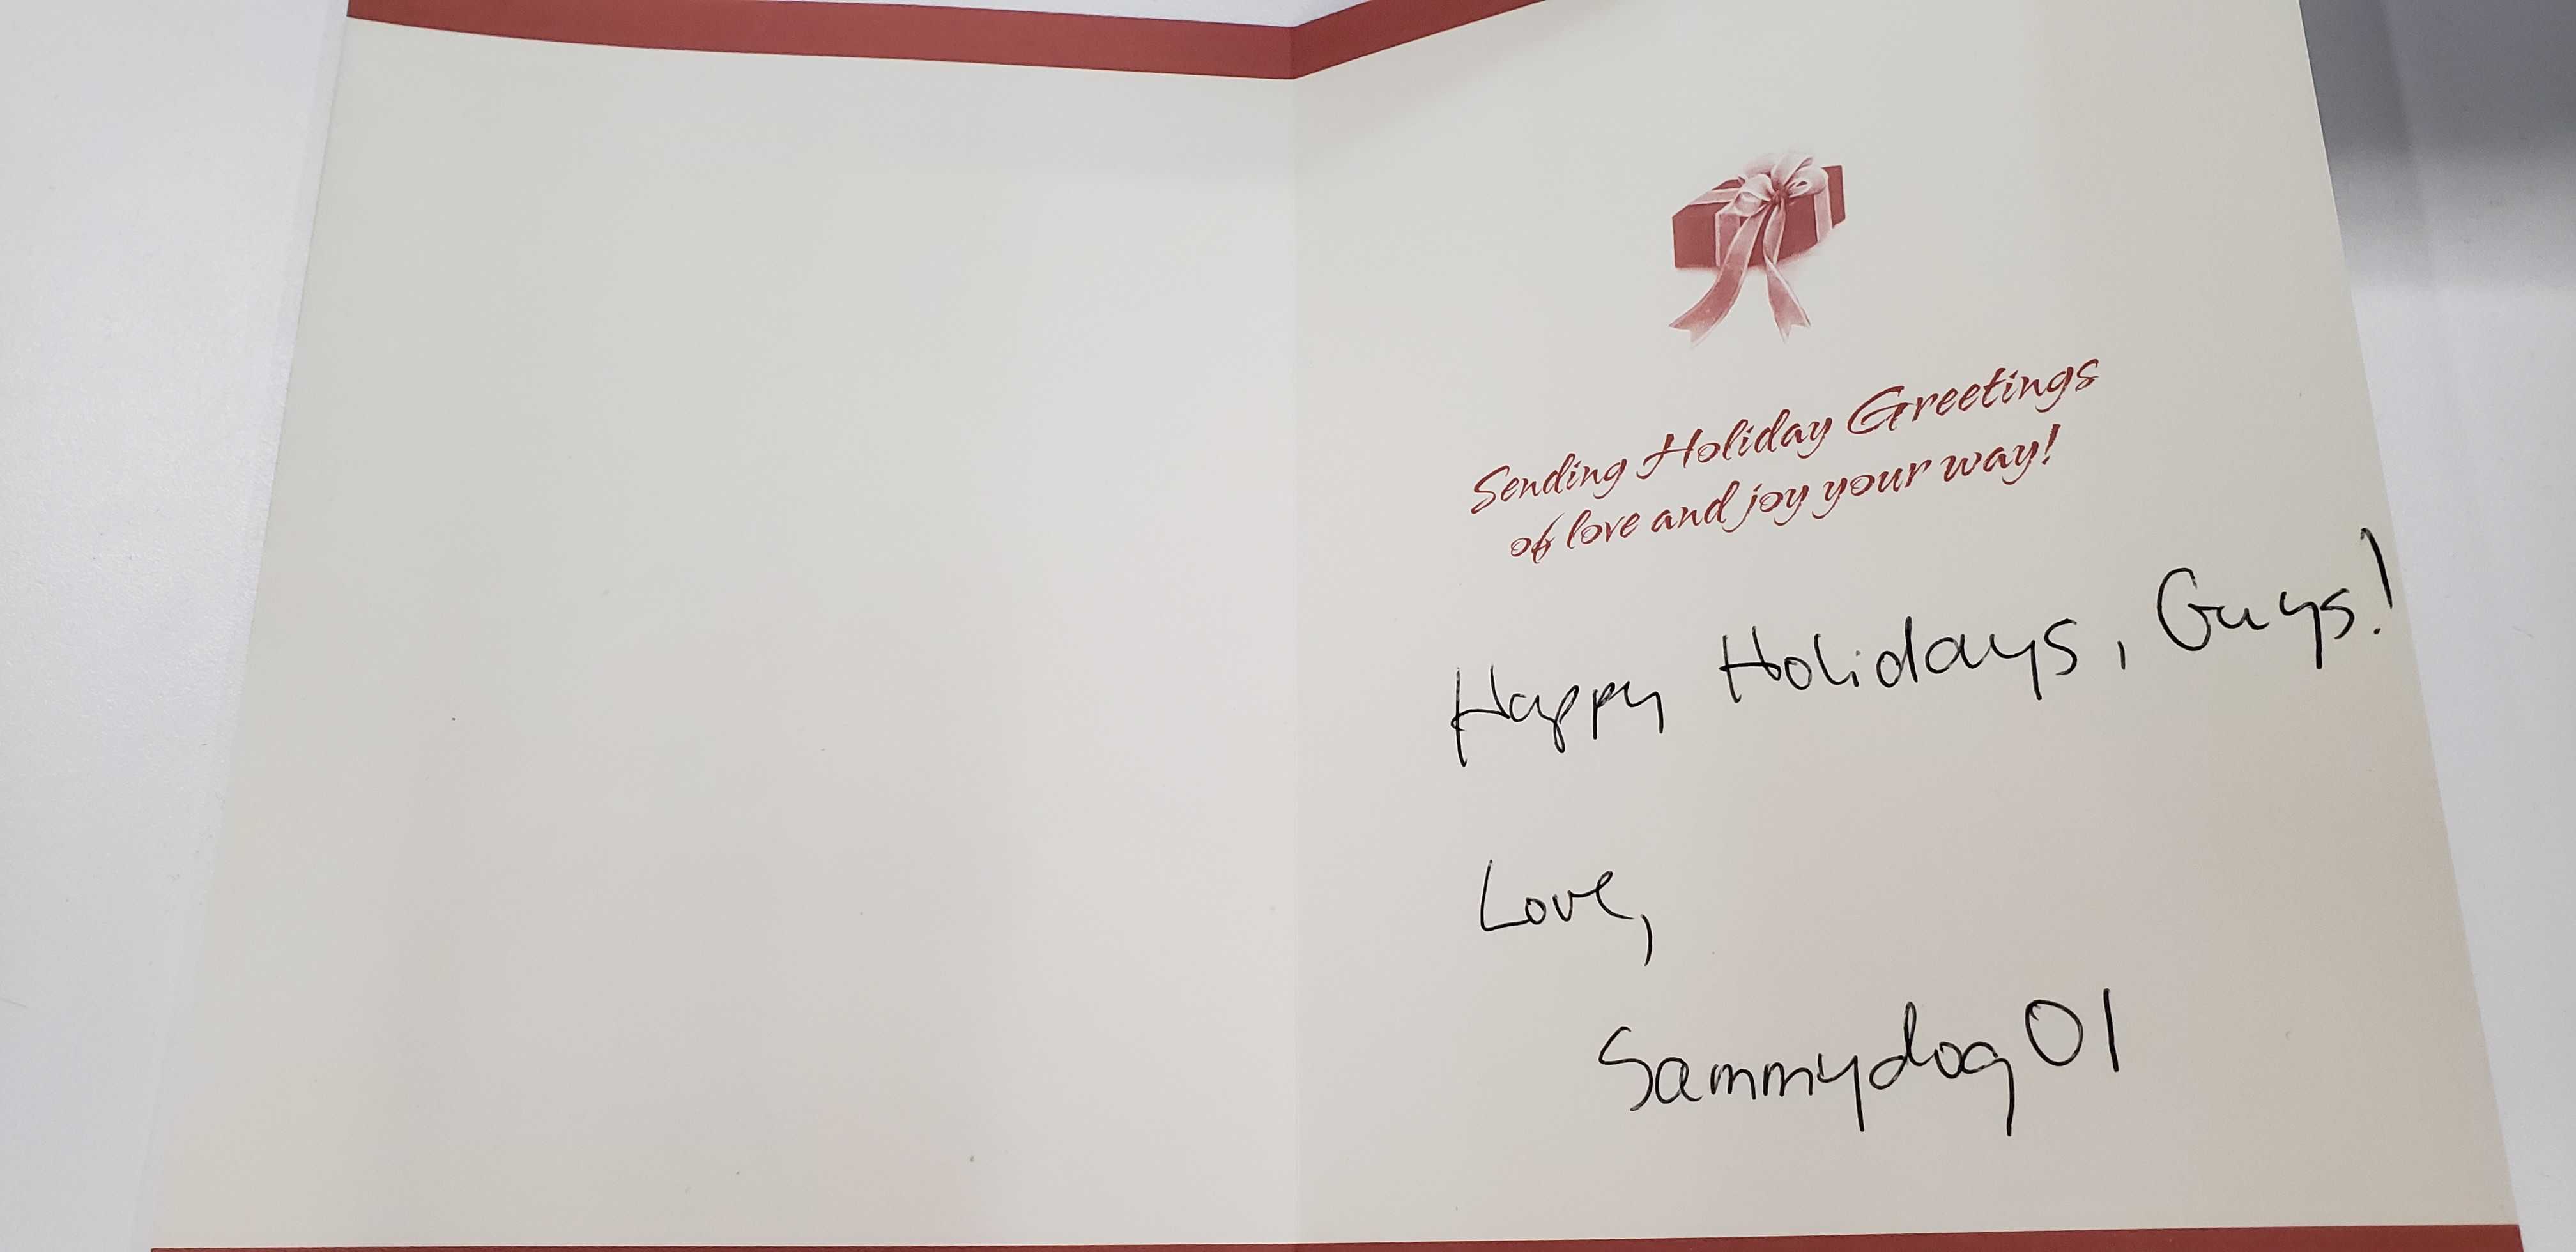 Sending Holiday Greetings
of love and joy your way!
Happy Holidays, Guys!
Love,
Sammydog01